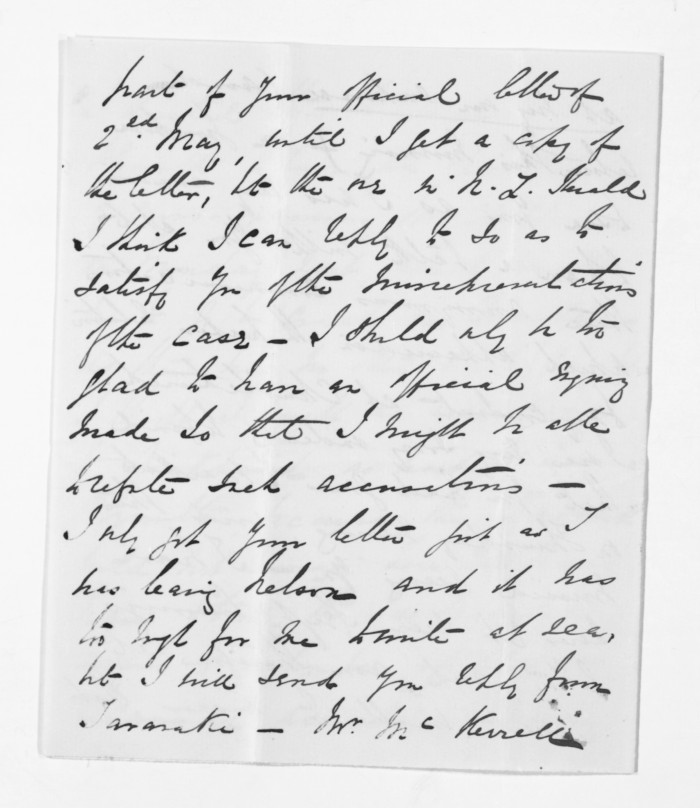 part of your official letter of
2nd May, until I get a copy of
the letter, but the one in N. Z. Herald
I think I can reply to so as to
satisfy you of the misrepresentations
of the case – I should only be too
glad to have an official enquiry
made so that I might be able
to refute such accusations –
I only got your letter just as I
was leaving Nelson and it was
too rough for me to write at sea,
but I will send you reply from
Taranaki – Mr. Mc Kerrell